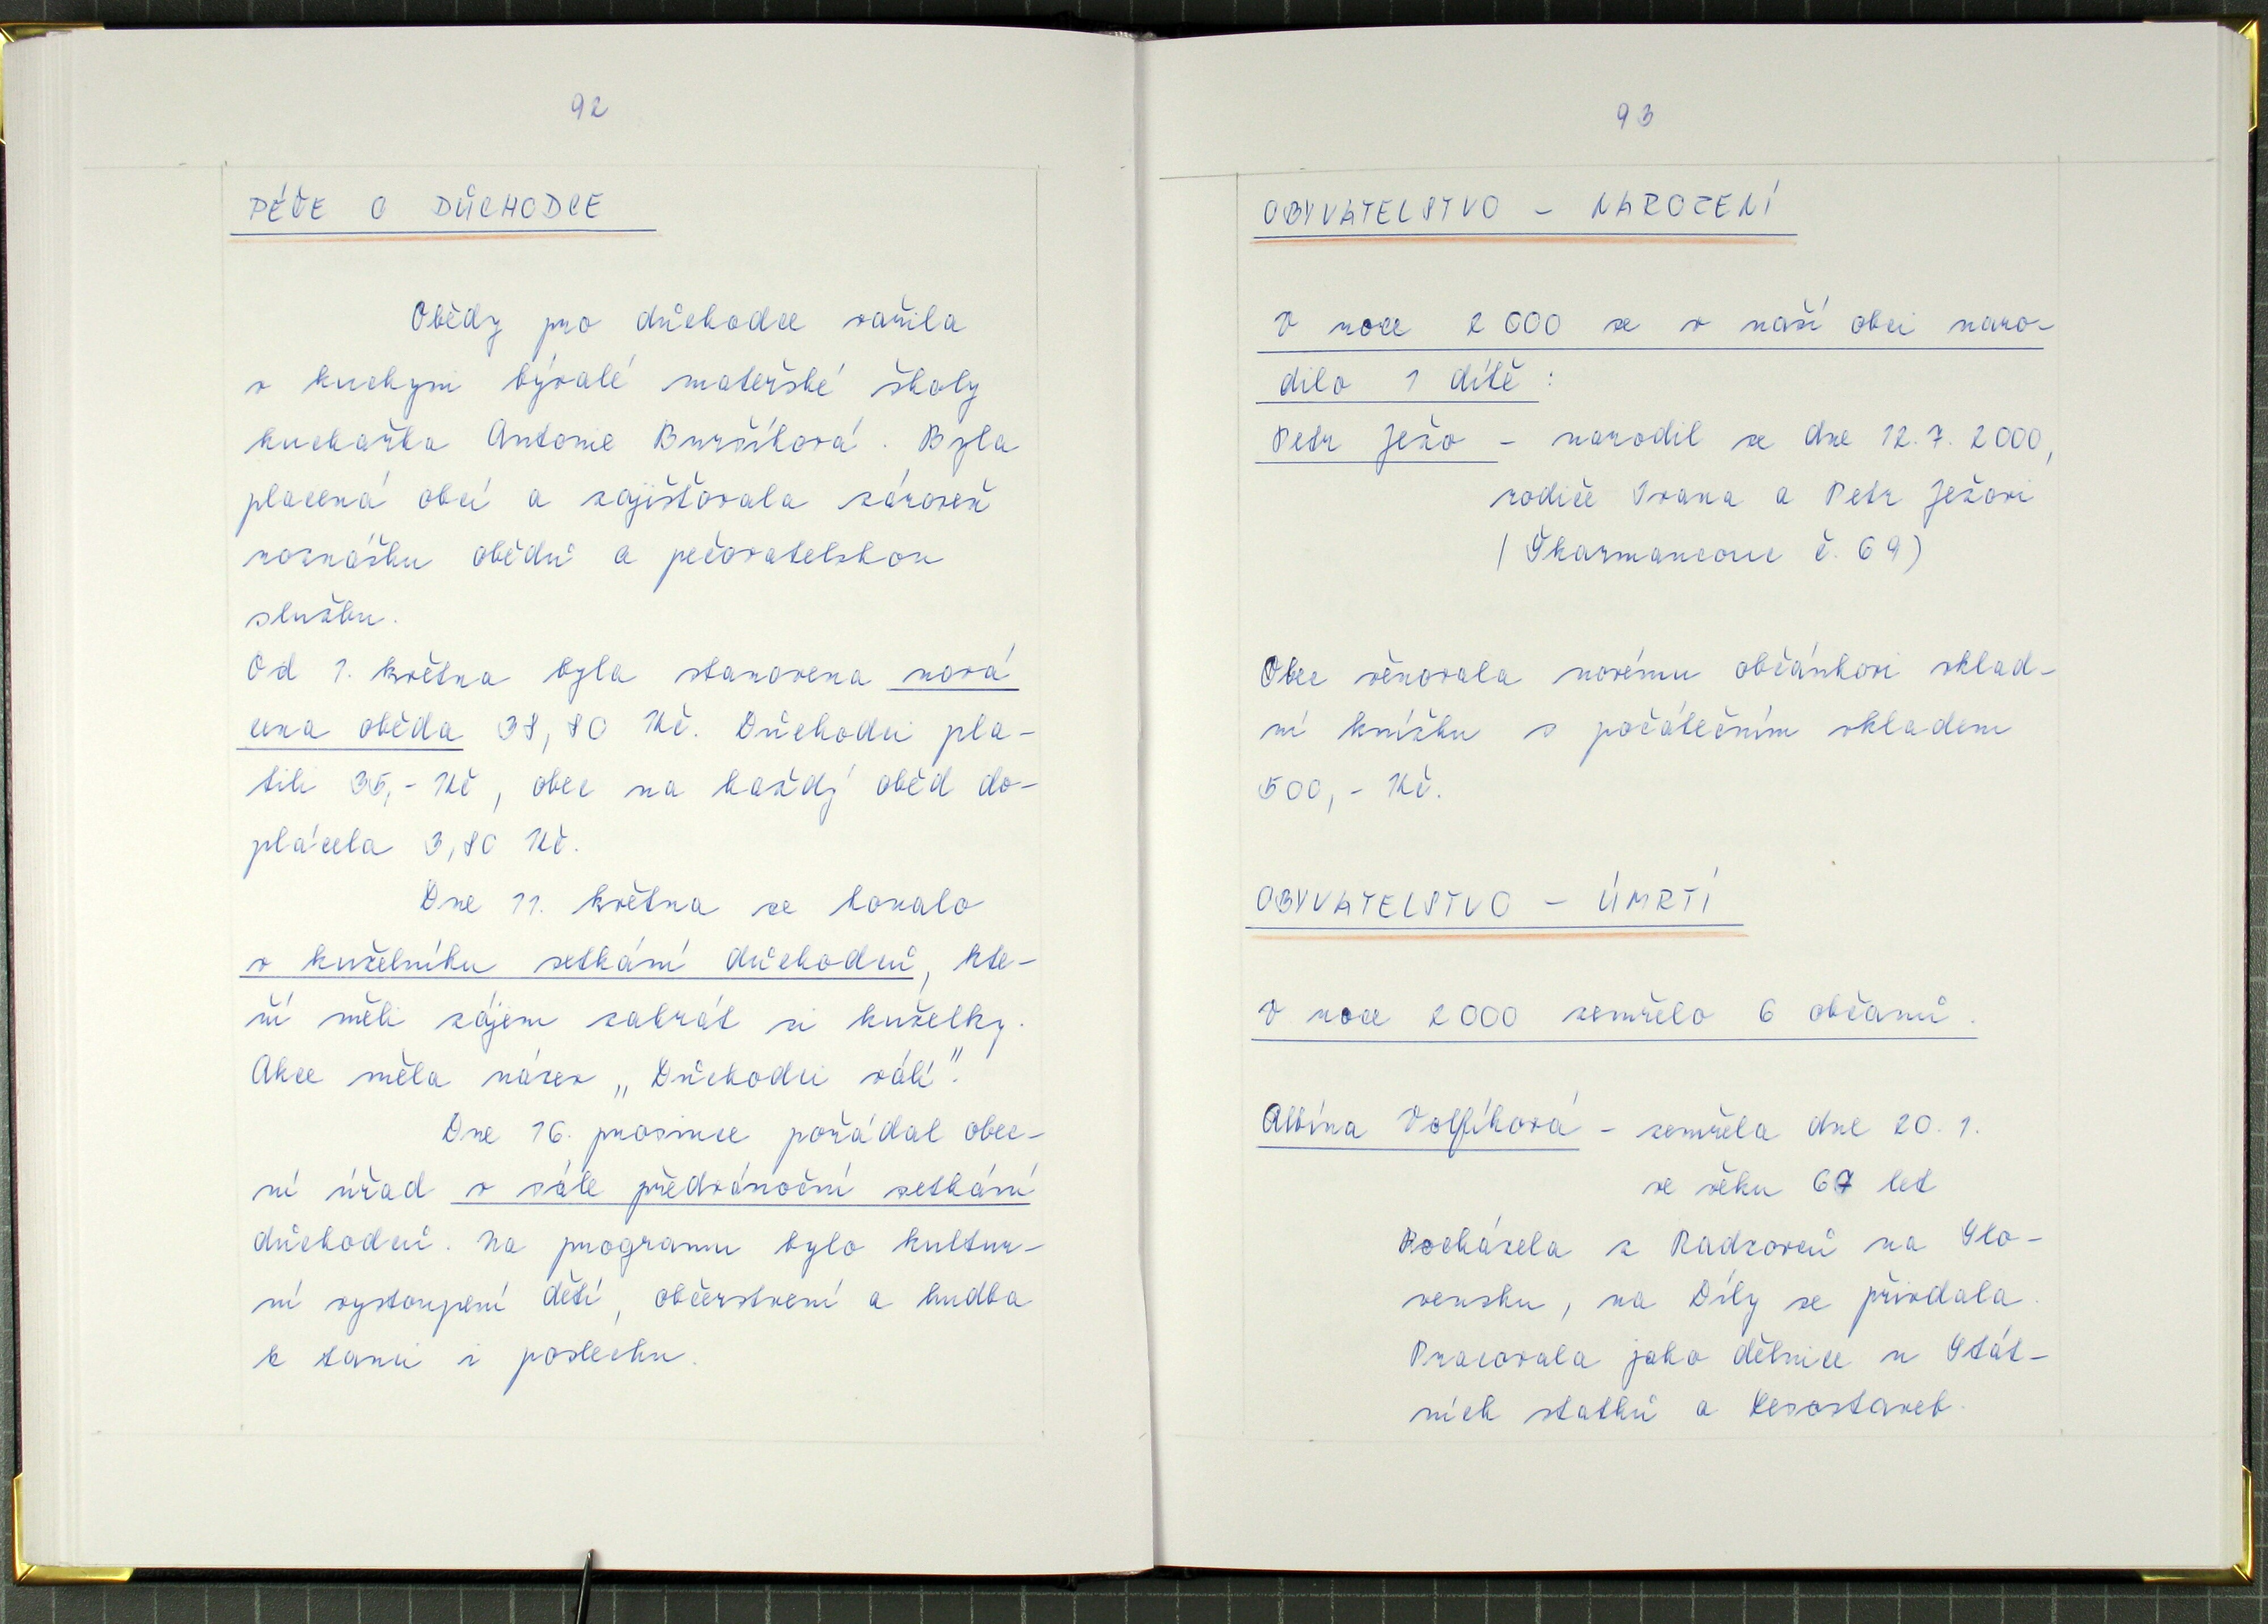 92
PÉČE O DŮCHODCE
Obědy pro důchodce vařila
v kuchyni bývalé mateřské školy
kuchařka Antonie Buršíková. Byla
placená obcí a zajišťovala zároveň
roznášku obědů a pečovatelskou
službu.
Od 1. května byla stanovena nová
cena oběda 38,80 Kč. Důchodci pla-
tili 35,- Kč, obec na každý oběd do-
plácela 3,80 Kč.
Dne 11. května se konalo
v kuželníku setkání důchodců, kte-
ří měli zájem zahrát si kuželky.
Akce měla název „Důchodci válí".
Dne 16. prosince pořádal obec-
ní úřad v sále předvánoční setkání
důchodců. Na programu bylo kultur-
ní vystoupení dětí, občerstvení a hudba
k tanci i poslechu.
93
OBYVATELSTVO - NAROZENÍ
V roce 2000 se v naší obci naro-
dilo 1 dítě:
Petr Ježo - narodil se dne 12.7. 2000,
rodiče Ivana a Petr Ježovi
(Škarmancouc č. 69)
Obec věnovala novému občánkovi vklad-
ní knížku s počátečním vkladem
500,- Kč.
OBYVATELSTVO - ÚMRTÍ
V roce 2000 zemřelo 6 občanů.
Albína Volfíková - zemřela dne 20. 1.
ve věku 67 let
Pocházela z Radzovců na Slo-
vensku, na Díly se přivdala.
Pracovala jako dělnice u Stát-
ních statků a Kesostaveb.